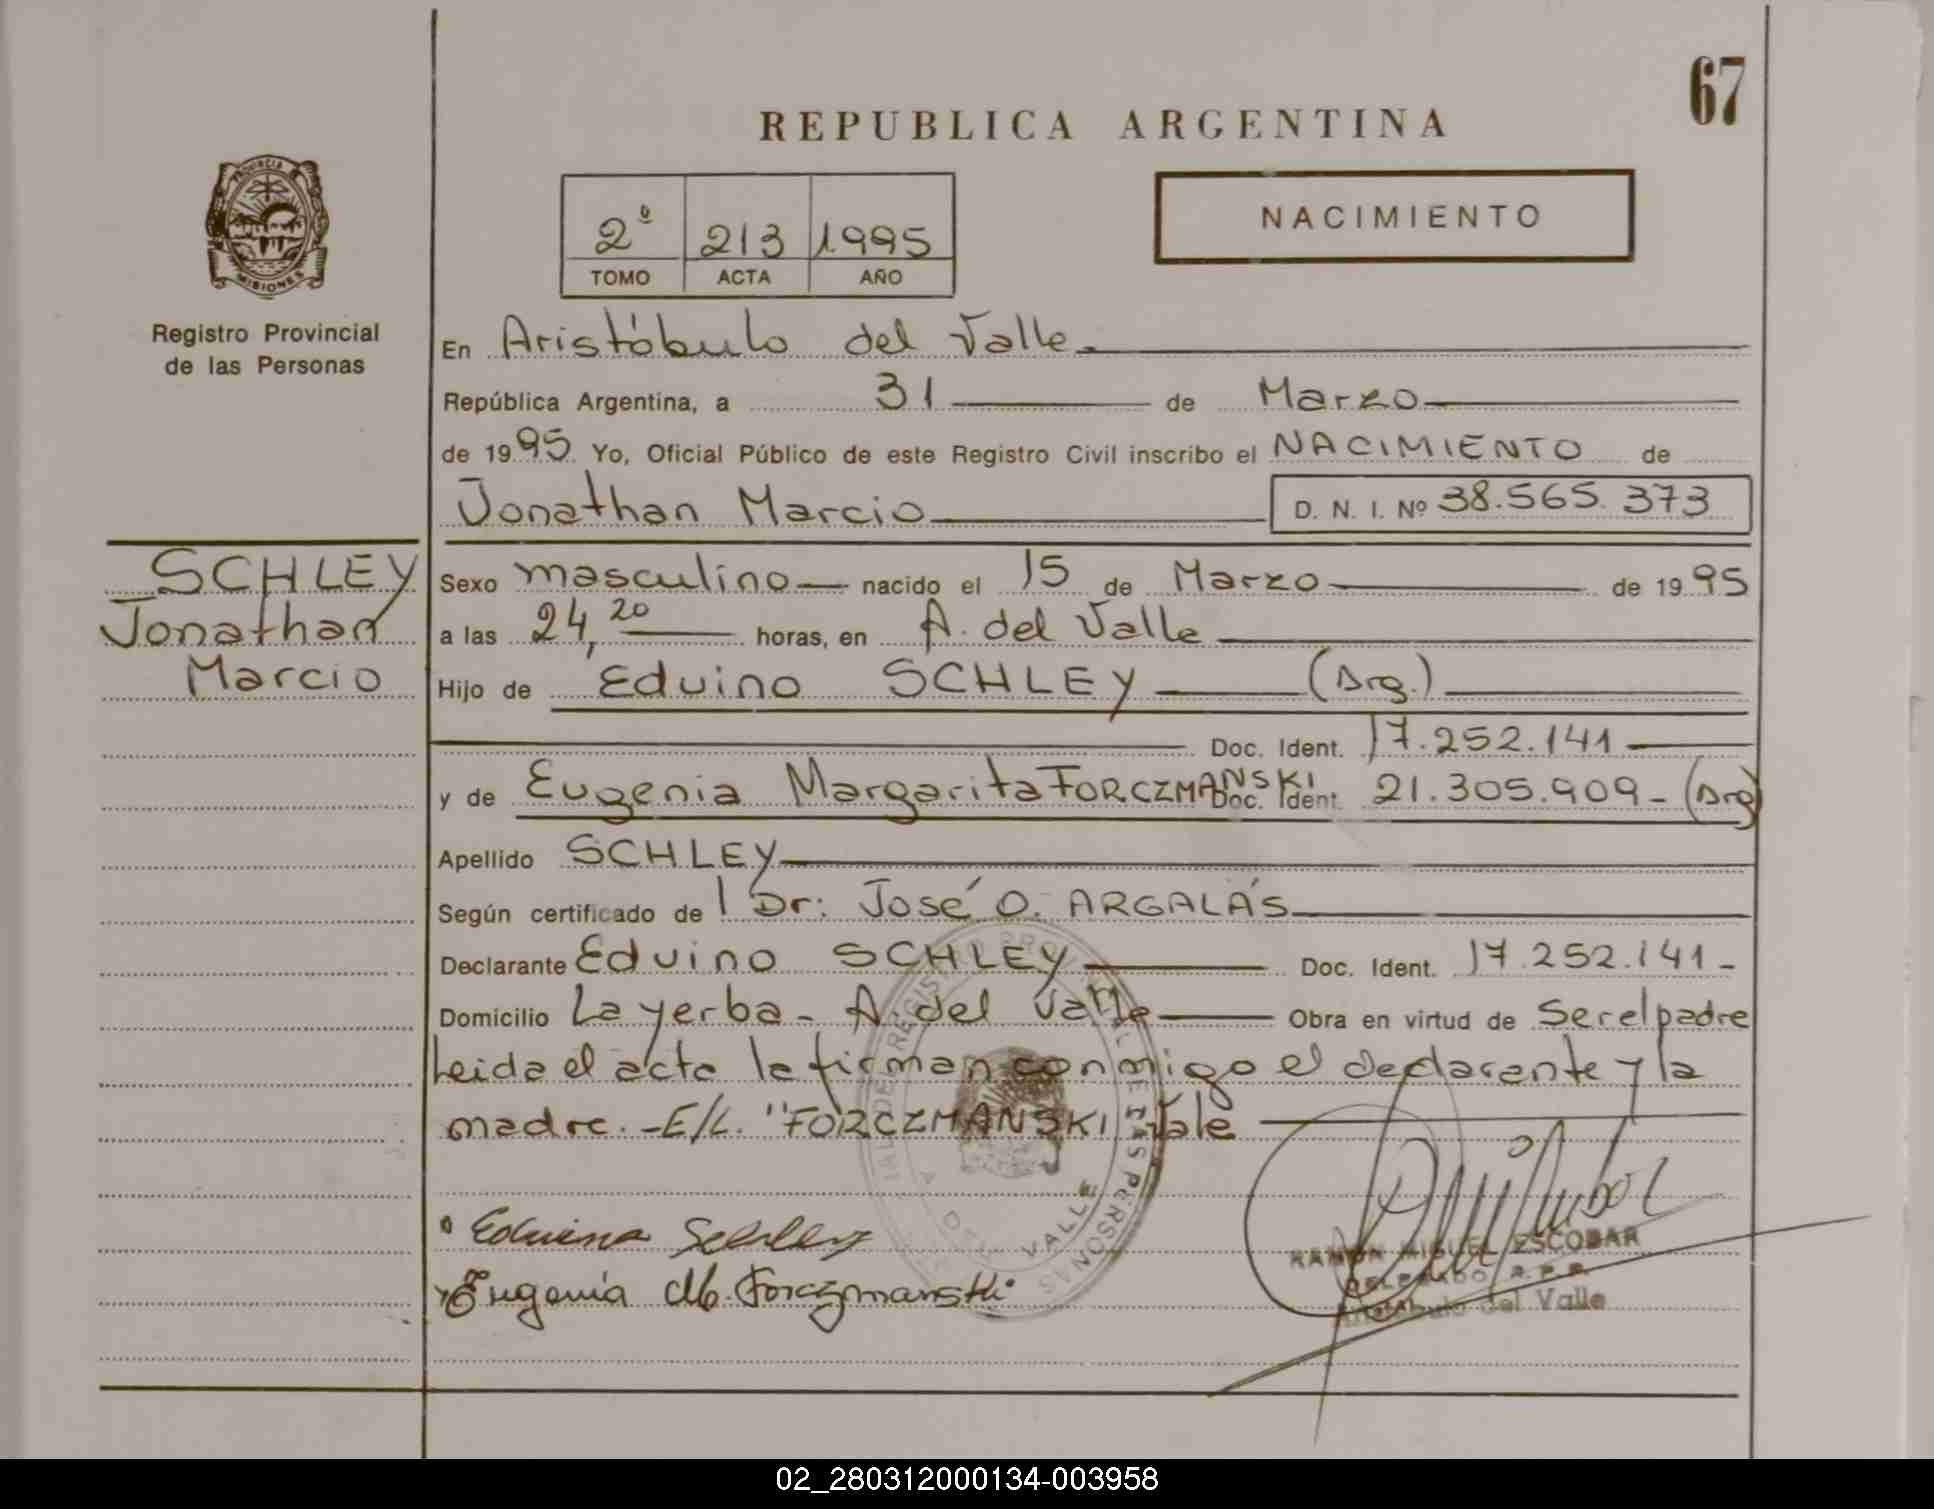 67
REPUBLICA ARGENTINA
PROVINCIA
MISIONES
Registro Provincial
de las Personas
2º 213 1995
TOMO ACTA AÑO
NACIMIENTO
En Aristóbulo del Valle.
República Argentina, a 31 de Marzo
de 1995 Yo, Oficial Público de este Registro Civil inscribo el NACIMIENTO de
Jonathan Marcio D. N. I. Nº 38.565.373
SCHLEY
Jonathan
Marcio
Sexo masculino nacido el 15 de Marzo de 1995
a las 24,20 horas, en A. del Valle
Hijo de Eduino SCHLEY (Arg.)
Doc. Ident. 17.252.141
y de Eugenia Margarita FORCZMANSKI Doc. Ident. 21.305.909 - (Arg)
Apellido SCHLEY
Según certificado de Dr: José O. ARGALÁS
Declarante Eduino SCHLEY Doc. Ident. 17.252.141 -
Domicilio La yerba - A. del Valle Obra en virtud de Ser el padre
Leida el acta la firman conmigo el declarante y la
madre. - E/L. "FORCZMANSKI Vale
Eduino Schley
Eugenia M. Forczmanski
RAMON MIGUEL ESCOBAR
DELEGADO R.P.P.
Aristobulo del Valle
02_280312000134-003958